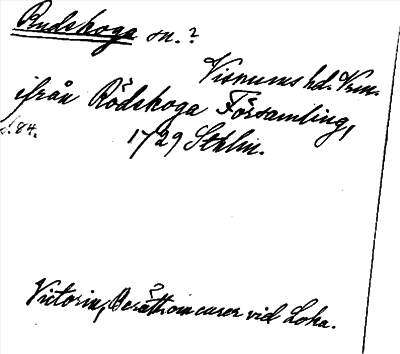 Rudskoga sn.?
Visnums hd. Vrm.
ifrån Rödskoga Församling,
s. 84. 1729 Sthlm.
Victorin, Berätt. om curer vid Loka.